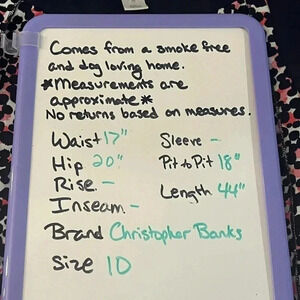 Comes from a smoke free
and dog loving home.
*Measurements are
approximate*
No returns based on measures.
Waist 17"
Hip 20"
Rise -
Inseam -
Sleeve -
Pit to Pit 18"
Length 44"
Brand Christopher Banks
Size 10